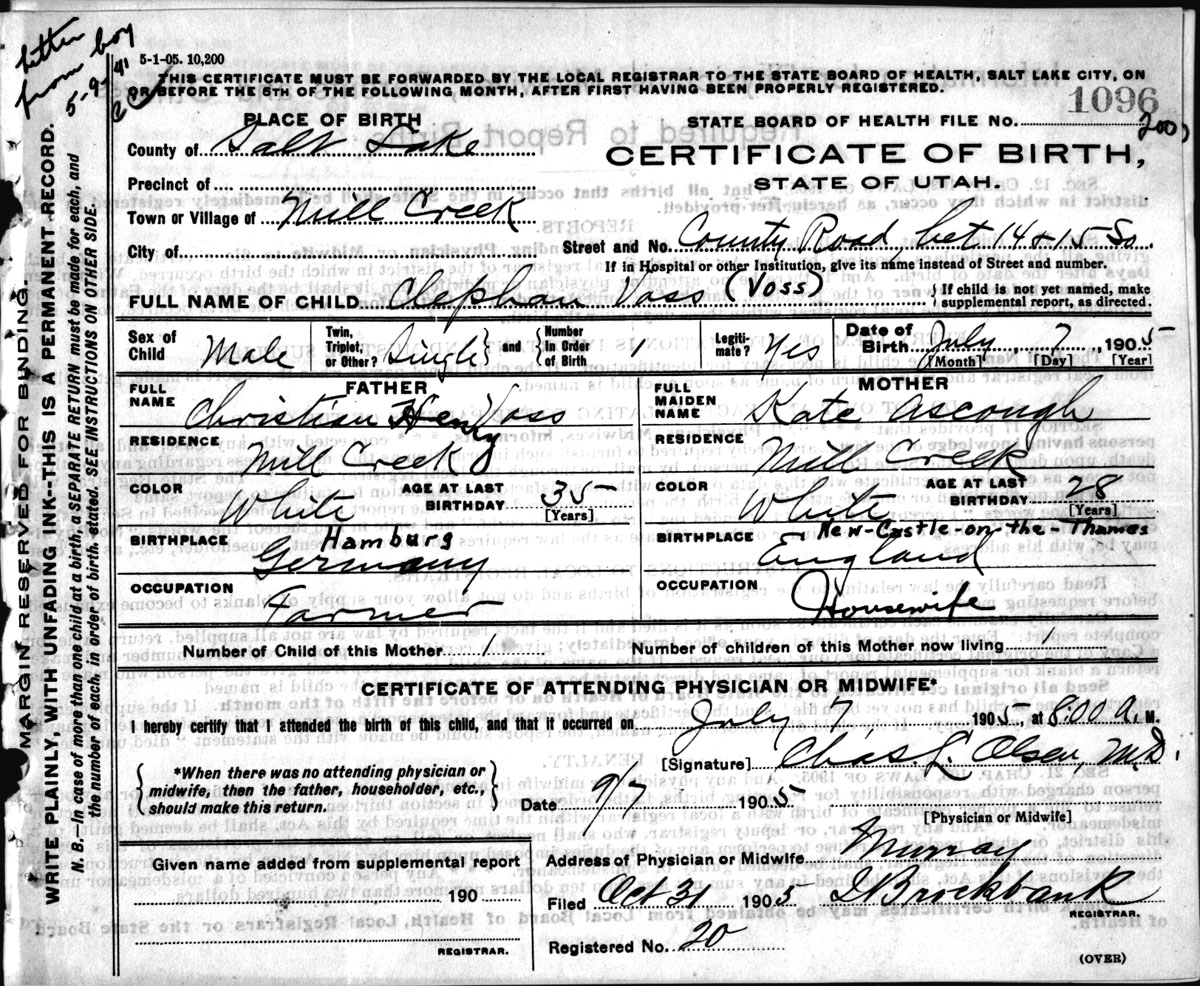 letter
from boy
5-9-41
5-1-05. 10,200
THIS CERTIFICATE MUST BE FORWARDED BY THE LOCAL REGISTRAR TO THE STATE BOARD OF HEALTH, SALT LAKE CITY, ON
OR BEFORE THE 5TH OF THE FOLLOWING MONTH, AFTER FIRST HAVING BEEN PROPERLY REGISTERED.
1096
PLACE OF BIRTH
STATE BOARD OF HEALTH FILE NO.
200
County of Salt Lake
CERTIFICATE OF BIRTH,
STATE OF UTAH.
Precinct of
Town or Village of Mill Creek
City of
Street and No. County Road bet 14 & 15 So.
If in Hospital or other Institution, give its name instead of Street and number.
FULL NAME OF CHILD Clephan Voss (Voss)
If child is not yet named, make
supplemental report, as directed.
Sex of Child Male
Twin, Triplet, or Other? Single
and
Number In Order of Birth 1
Legiti-mate? Yes
Date of Birth July 7 1905
[Month] [Day] [Year]
FATHER
FULL NAME Christian Henry Voss
RESIDENCE
Mill Creek
COLOR White
AGE AT LAST BIRTHDAY 35
[Years]
BIRTHPLACE Hamburg
Germany
OCCUPATION
Farmer
MOTHER
FULL MAIDEN NAME Kate Ascough
RESIDENCE
Mill Creek
COLOR White
AGE AT LAST BIRTHDAY 28
[Years]
BIRTHPLACE New-Castle-on-the-Thames
England
OCCUPATION
Housewife
Number of Child of this Mother 1
Number of children of this Mother now living 1
CERTIFICATE OF ATTENDING PHYSICIAN OR MIDWIFE*
I hereby certify that I attended the birth of this child, and that it occurred on July 7 1905, at 8:00 A. M.
[Signature] Chas. L. Olsen, M.D.
*When there was no attending physician or
midwife, then the father, householder, etc.,
should make this return.
Date 9/7 1905
[Physician or Midwife]
Given name added from supplemental report
190
REGISTRAR.
Address of Physician or Midwife Murray
Filed Oct 31 1905 Brockbank
REGISTRAR.
Registered No. 20
(OVER)
MARGIN RESERVED FOR BINDING.
WRITE PLAINLY, WITH UNFADING INK--THIS IS A PERMANENT RECORD.
N. B.—In case of more than one child at a birth, a SEPARATE RETURN must be made for each, and
the number of each, in order of birth, stated. SEE INSTRUCTIONS ON OTHER SIDE.